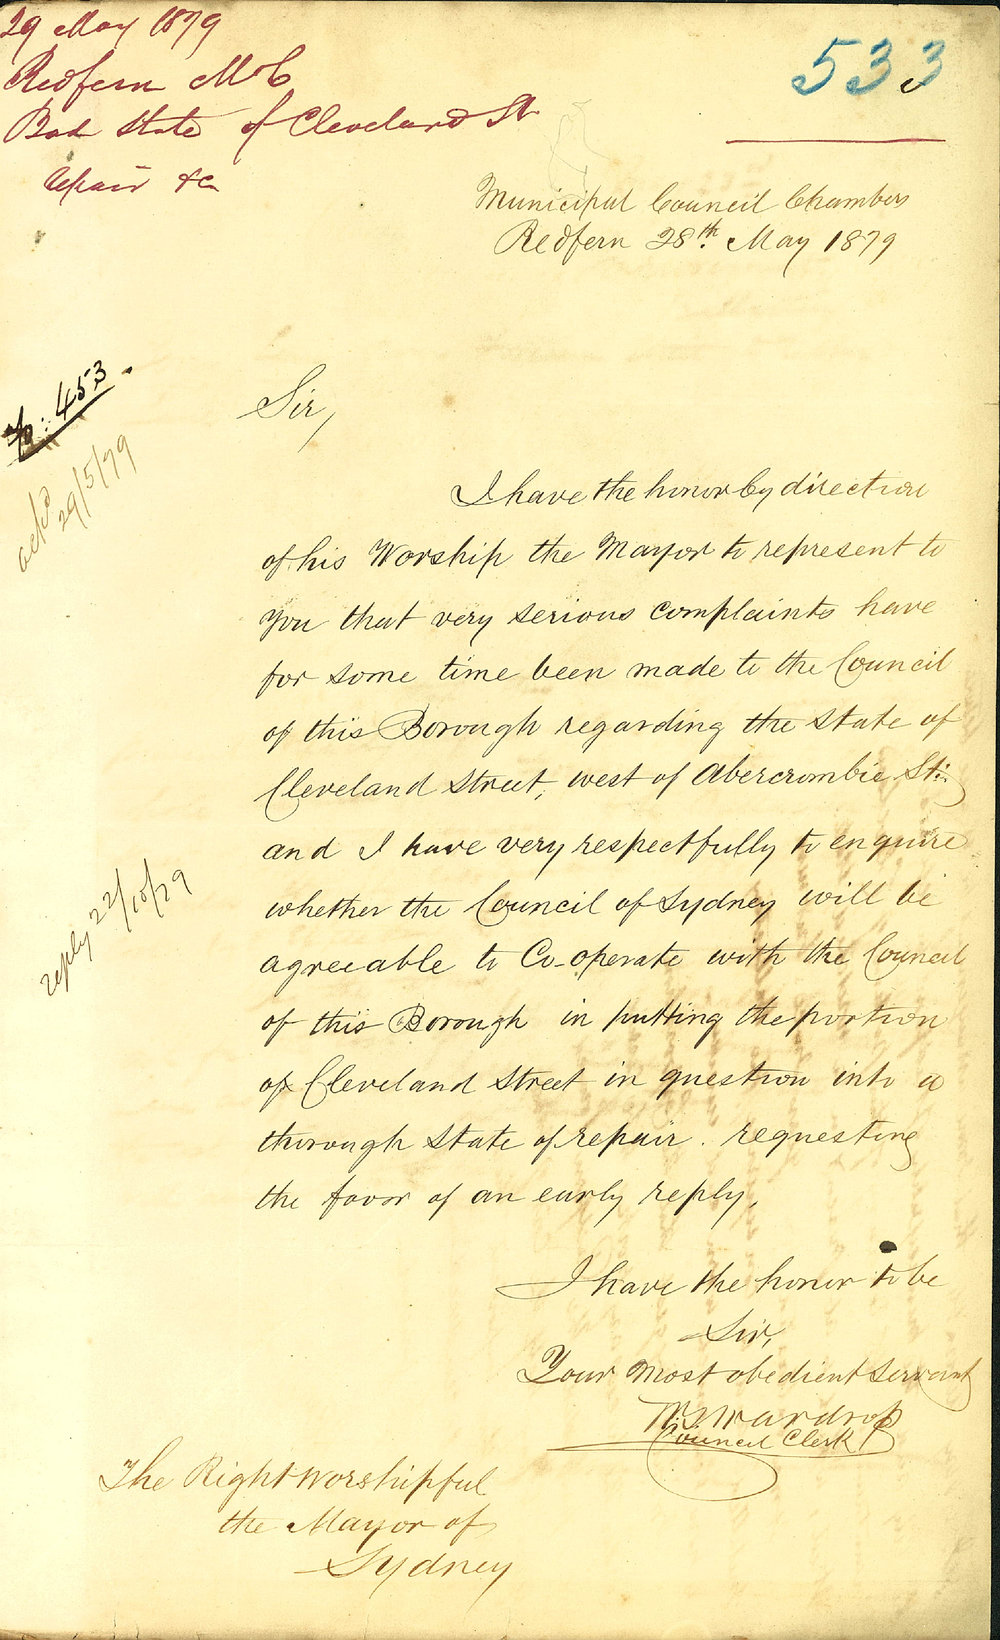 29 May 1879
Redfern M C
Bad State of Cleveland St
repair &c
533
Municipal Council Chambers
Redfern 28th. May 1879
453.
ackd
29/5/79
Sir,
I have the honor by direction
of his Worship the Mayor to represent to
you that very serious complaints have
for some time been made to the Council
of this Borough regarding the state of
Cleveland Street, west of Abercrombie St:
and I have very respectfully to enquire
whether the Council of Sydney will be
agreeable to Co-operate with the Council
of this Borough in putting the portion
of Cleveland Street in question into a
thorough state of repair. requesting
the favor of an early reply.
reply 22/10/79
I have the honor to be
Sir,
Your most obedient servant
Wardrop
Council Clerk
The Right Worshipful
the Mayor of
Sydney